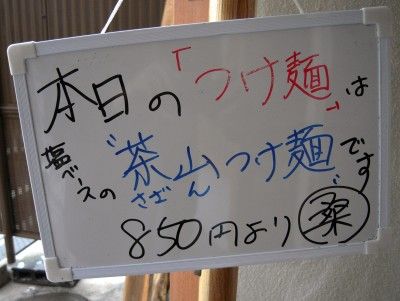 本日の「つけ麺」は
塩ベースの"茶山つけ麺"です
さざん
850円より 桑